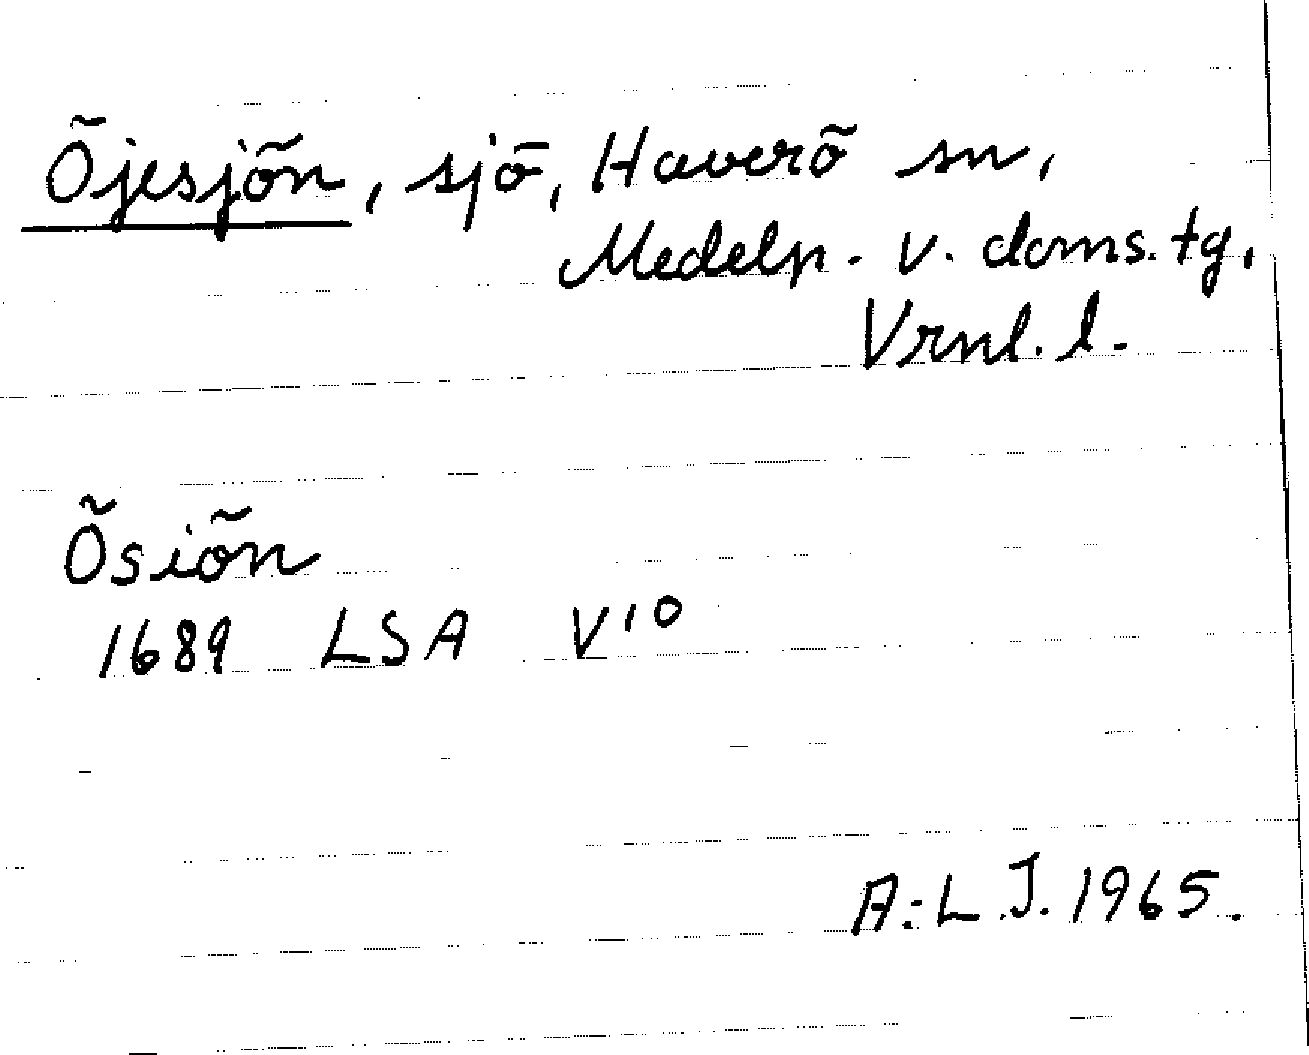 Öjesjön, sjö, Haverö sn,
Medelp. v. doms. tg,
Vrnl. l.
Ösiön
1689 LSA V10
A:L J. 1965.